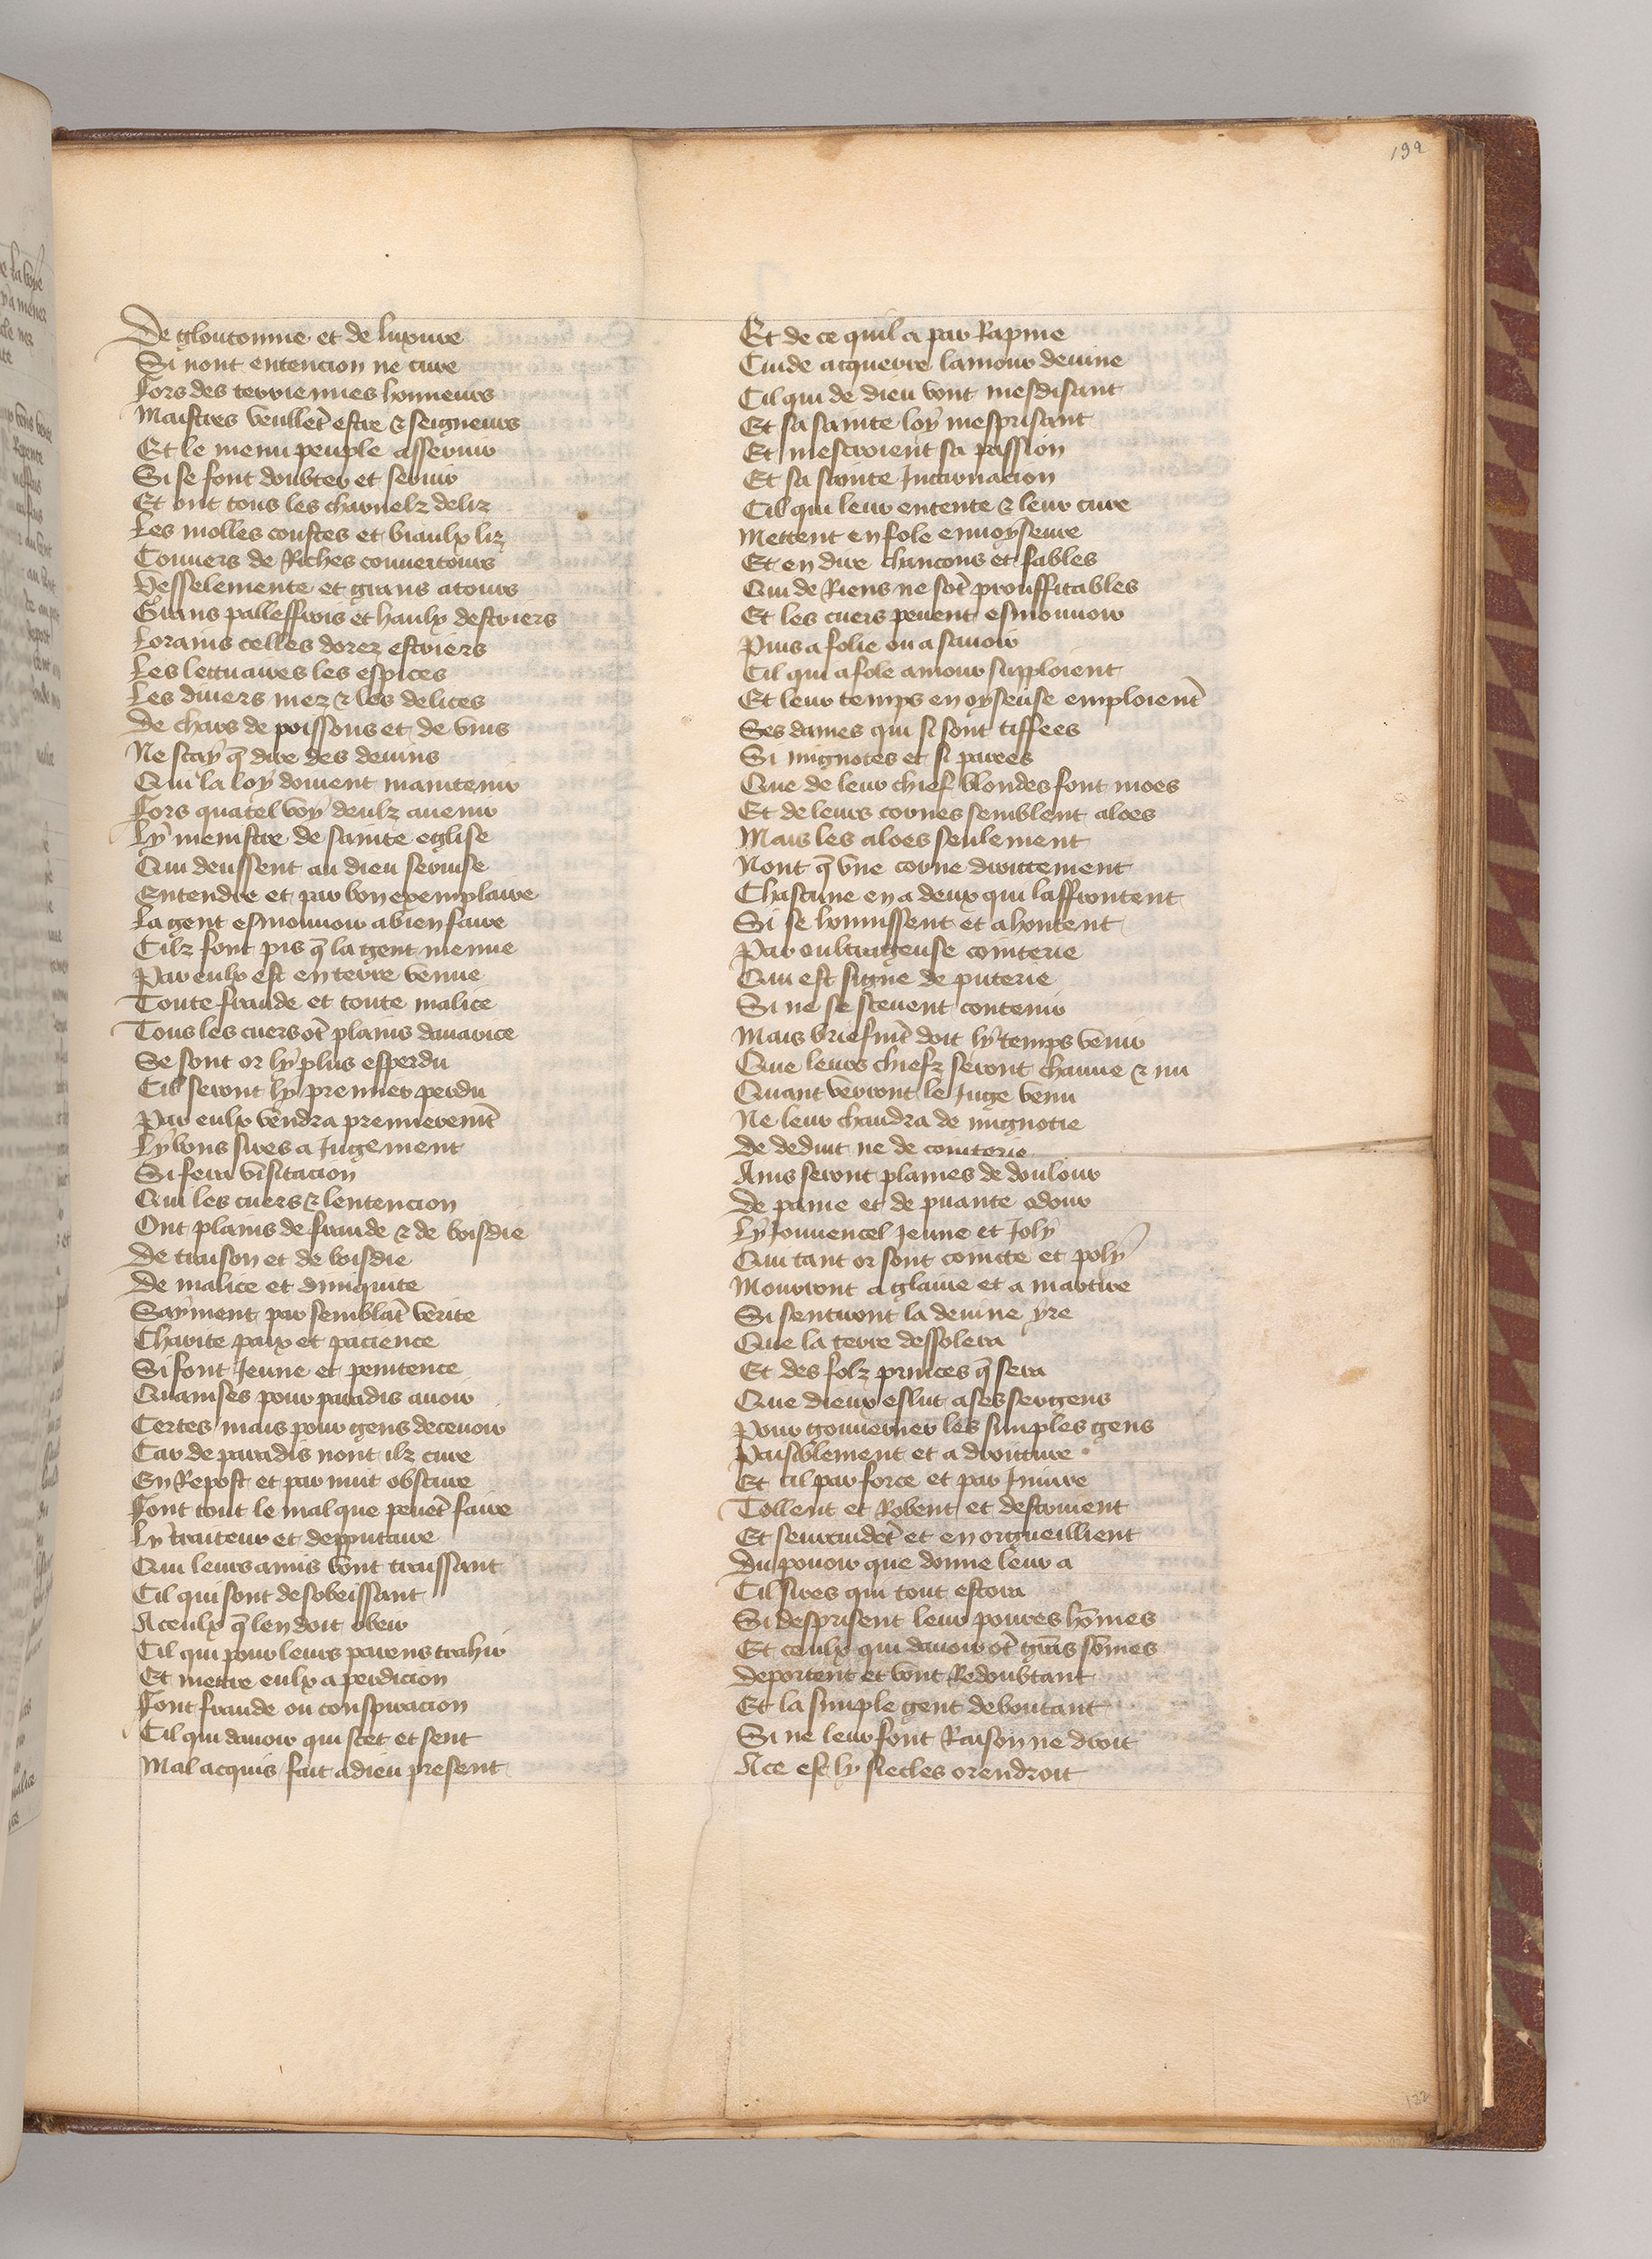 192
De gloutonnie et de luxure
Si nont entencion ne cure
Fors des terriennes honneurs
Maistres veullēt estre & seigneurs
Et le menu peuple asservir
Si se font doubter et servir
Et ont tous les charnelz deliz
Les molles coustes et biaulx liz
Couvers de Riches couvertours
Vesselemente et grans atours
Grans palleffrois et haulx destriers
Lorains celles dorez estriers
Les lectuaires les espices
Les divers mez & les delices
De chars de poissons et de vins
Ne scay q̄ dire des devins
Qui la loy doivent maintenir
Fors quatel voy deulz avenir
Ly menistre de sainte eglise
Qui deussent au dieu servise
Entendre et par bon exemplaire
La gent esmouvoir a bien faire
Cilz font pis q̄ la gent menue
Par eulx est en terre venue
Toute fraude et toute malice
Tous les cuers ōt plains davarice
Se sont or ly plus esperdu
Cil seront ly premier perdu
Par eulx vendra premieremēt
Ly bons sires a Jugement
Si fera visitacion
Qui les cuers & lentencion
Ont plains de fraude & de boisdie
De traison et de voisdie
De malice et diniquite
Sayment par semblāt verite
Charite paix et pacience
Si font Jeune et penitence
Quainses pour paradis avoir
Certes mais pour gens decevoir
Car de paradis nont ilz cure
En Repost et par nuit obscure
Font tout le mal que peuēt faire
Ly traiteur et depputaire
Qui leurs amis vont traissant
Cil qui sont desobeissant
A ceulx q̄ len doit obeir
Cil qui pour leurs parens trahir
Et mettre eulx a perdicion
Font fraude ou conspiracion
Cil qui davoir qui scet et sent
Mal acquis fait a dieu present
Et de ce quil a par Rapine
Cuide acquerre lamour devine
Cil qui de dieu vont mesdisant
Et sa sainte loy mesprisant
Et mescroient sa passion
Et sa sainte Incarnacion
Cil qui leur entente & leur cure
Mettent en fole envoyseure
Et en dire chancons et fables
Qui de Riens ne sōt prouffitables
Et les cuers peuent esmouvoir
Puis a folie ou a savoir
Cil qui a fole amour supploient
Et leur temps en oyseuse emploient
Ses dames qui si sont tiffees
Si mignotes et si parees
Que de leur chief blondes font moes
Et de leurs cornes semblent aloes
Mais les aloes seulement
Nont q̄ vne corne droittement
Chascune en a deux qui laffrontent
Si se honnissent et ahontent
Par oultrageuse cointerie
Qui est signe de puterie
Si ne se scevent contenir
Mais briefmēt doit ly temps venir
Que leurs chiefz seront chauue & nu
Quant verront le Juge venu
Ne leur chaudra de mignotie
De deduit ne de cointerie
Ains seront plaines de doulour
De paine et de puante odour
Ly Jouvencel Jeune et Joly
Qui tant or sont cointe et poly
Mourront a glaive et a martire
Si sentiront la devine yre
Que la terre dessolera
Et des folz princes q̄ sera
Que dieux eslut a ses sergens
Pour gouverner les simples gens
Paisiblement et a droitture
Et cil par force et par Iniure
Tollent et Robent et destruient
Et seurcuidēt et en orgueillient
Du povoir que donne leur a
Cil sires qui tout estora
Si desprisent leur povres hōmes
Et ceulx qui davoir ōt grās sōmes
Deportent et vont Redoubtant
Et la simple gent deboutant
Si ne leur font Raison ne droit
A ce est ly siecles orendroit